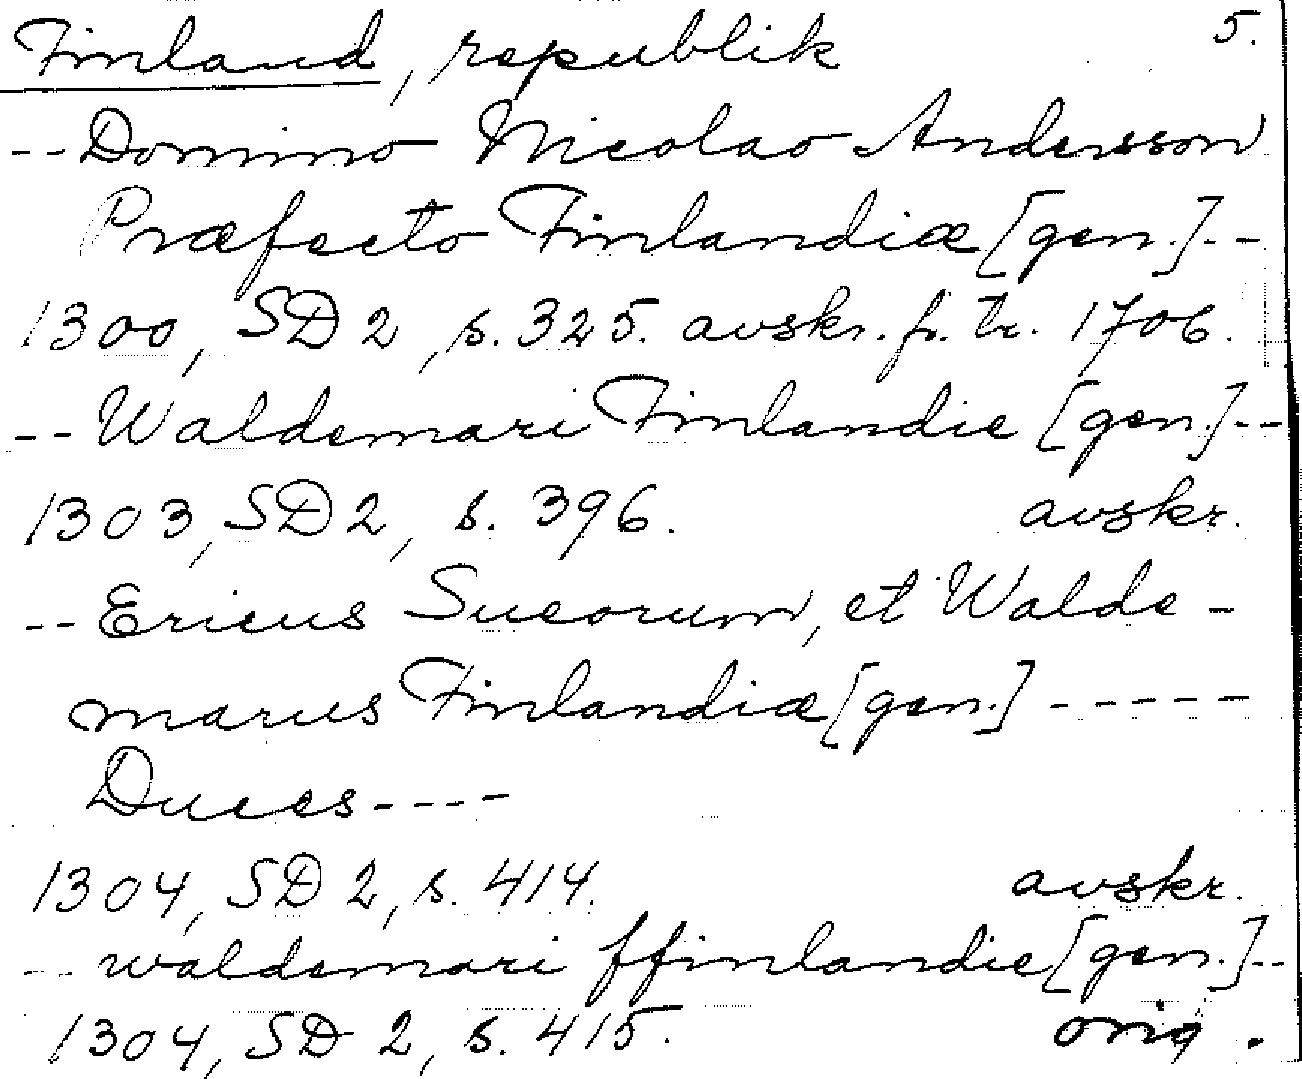 Finland, republik 5.
-- Domino Nicolao Andersson
Præfecto Finlandiæ [gen.] --
1300, SD 2, s. 325. avskr. fr. tr. 1706.
-- Waldemari Finlandie [gen.] --
1303, SD 2, s. 396. avskr.
-- Ericus Sueorum, et Walde-
marus Finlandiæ [gen.] -----
Duces ----
1304, SD 2, s. 414. avskr.
-- waldemari ffinlandie [gen.] --
1304, SD 2, s. 415. orig.